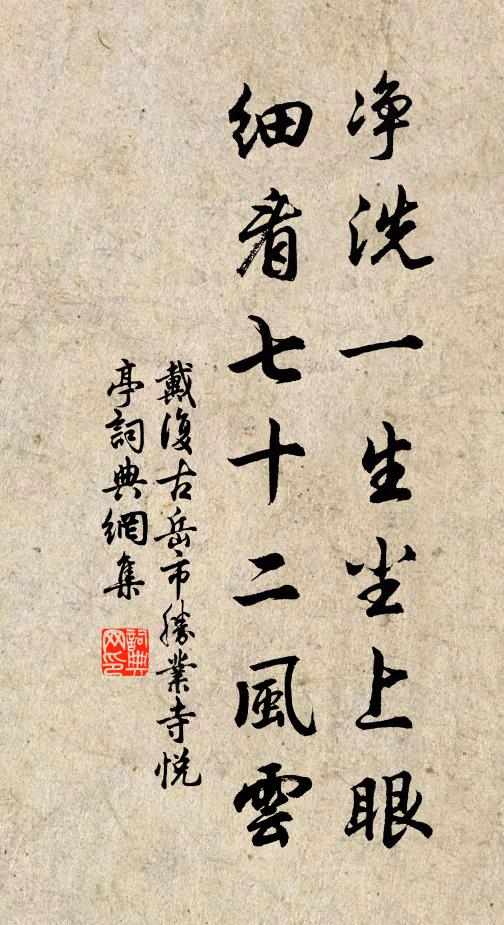 净洗一生尘上眼
细看七十二風雲
戴復古岳市勝業寺悦
亭詞典網集
詞典网印